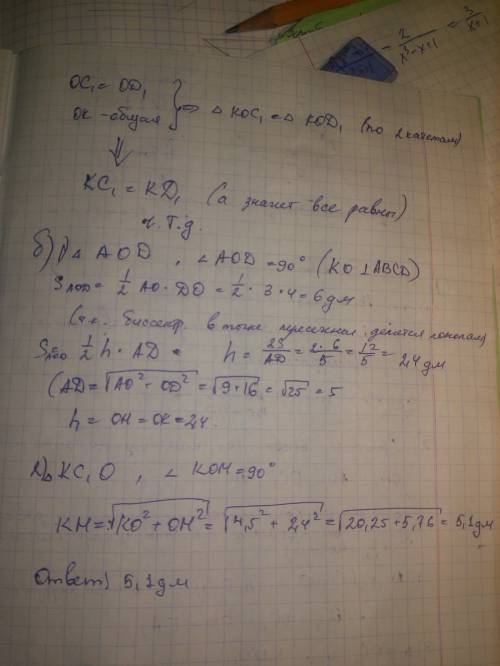 2/(x³-x+1) = 3/(x+1)
OC₁ = OD₁
OK - общая } ⇒ △ KOC₁ = △ KOD₁ (по 2 катетам)
⇓
KC₁ = KD₁ (а значит все равны)
ч.т.д.
б) 1) △ AOD, ∠AOD = 90° (KO ⊥ ABCD)
S_AOD = 1/2 AO · DO = 1/2 · 3 · 4 = 6 дм
(т.к. биссектр. в точке пересечения делятся пополам)
S_AOD = 1/2 h · AD = h = 2S/AD = 2·6/5 = 12/5 = 2,4 дм
(AD = √(AO² + OD²) = √(9+16) = √25 = 5
h = OH = OK = 2,4
2) △ KC₁O, ∠ KOH = 90°
KH = √(KO² + OH²) = √(4,5² + 2,4²) = √(20,25 + 5,76) = 5,1 дм
Ответ) 5,1 дм